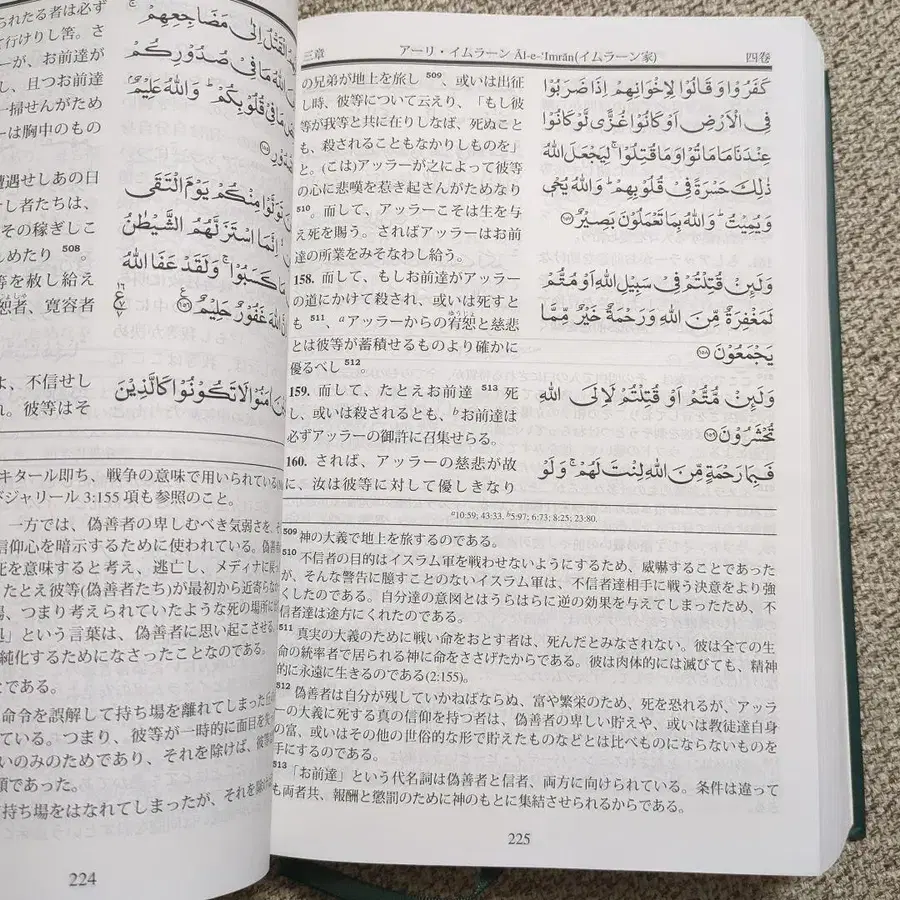 られたる者は必ず
て行けりし筈。さ
ーが、お前達
し、且つお前達
一掃せんがため
ーは胸中のもの
遭遇せしあの日
せし者たちは、
その稼ぎしこ
しめたり 508 。
等を赦し給え
恕者、寛容者
よ、不信せし
れ。彼等はそ
الْقَتْلُ اِلٰى مَضَاجِعِهِمْ ۚ
اللّٰهُ مَا فِىْ صُدُوْرِكُمْ
مَا فِىْ قُلُوْبِكُمْ ؕ وَاللّٰهُ عَلِيْمٌۢ
تَوَلَّوْا مِنْكُمْ يَوْمَ الْتَقَى
اِنَّمَا اسْتَزَلَّهُمُ الشَّيْطٰنُ
مَا كَسَبُوْا ۚ وَلَقَدْ عَفَا اللّٰهُ
اللّٰهَ غَفُوْرٌ حَلِيْمٌ ﴿۱۵۶﴾
اٰمَنُوْا لَا تَكُوْنُوْا كَالَّذِيْنَ
キタール即ち、戦争の意味で用いられている
ドジャリール 3:155 項も参照のこと。
一方では、偽善者の卑しむべき気弱さを、そ
信仰心を暗示するために使われている。偽善
死を意味すると考え、逃亡し、メディナに戻っ
たとえ彼等(偽善者たち)が最初から近寄らな
場、つまり考えられていたような死の場所に
」という言葉は、偽善者に思い起こさせる、
純化するためになさったことなのである。
とである。
命令を誤解して持ち場を離れてしまった
ている。つまり、彼等が一時的に面目を失
いのみのためであり、それを除けば、彼等
類であった。
持ち場をはなれてしまったが、それを除け
224
三章
アーリ・イムラーン Āl-e-‘Imrān(イムラーン家)
四巻
の兄弟が地上を旅し 509、或いは出征
し時、彼等について云えり、「もし彼
等が我等と共に在りしなば、死ぬこと
も、殺されることもなかりしものを」
と。(こは)アッラーが之によって彼等
の心に悲嘆を惹き起さんがためなり
510。而して、アッラーこそは生を与
え死を賜う。さればアッラーはお前
達の所業をみそなわし給う。
158. 而して、もしお前達がアッラー
の道にかけて殺され、或いは死すと
も 511、aアッラーからの宥恕と慈悲
ゆうじょ
とは彼等が蓄積せるものより確かに
優るべし 512。
159. 而して、たとえお前達 513 死
し、或いは殺されるとも、bお前達は
必ずアッラーの御許に召集せらる。
160. されば、アッラーの慈悲が故
に、汝は彼等に対して優しきなり
كَفَرُوْا وَقَالُوْا لِاِخْوَانِهِمْ اِذَا ضَرَبُوْا
فِى الْاَرْضِ اَوْ كَانُوْا غُزًّى لَّوْ كَانُوْا
عِنْدَنَا مَا مَاتُوْا وَمَا قُتِلُوْا ۚ لِيَجْعَلَ اللّٰهُ
ذٰلِكَ حَسْرَةً فِىْ قُلُوْبِهِمْ ؕ وَاللّٰهُ يُحْىٖ
وَيُمِيْتُ ؕ وَاللّٰهُ بِمَا تَعْمَلُوْنَ بَصِيْرٌ ﴿۱۵۷﴾
وَلَئِنْ قُتِلْتُمْ فِىْ سَبِيْلِ اللّٰهِ اَوْ مُتُّمْ
لَمَغْفِرَةٌ مِّنَ اللّٰهِ وَرَحْمَةٌ خَيْرٌ مِّمَّا
يَجْمَعُوْنَ ﴿۱۵۸﴾
وَلَئِنْ مُّتُّمْ اَوْ قُتِلْتُمْ لَاِالَى اللّٰهِ
تُحْشَرُوْنَ ﴿۱۵۹﴾
فَبِمَا رَحْمَةٍ مِّنَ اللّٰهِ لِنْتَ لَهُمْ ۚ وَلَوْ
a10:59; 43:33. b5:97; 6:73; 8:25; 23:80.
509 神の大義で地上を旅するのである。
510 不信者の目的はイスラム軍を戦わせないようにするため、威嚇することであった
が、そんな警告に臆すことのないイスラム軍は、不信者達相手に戦う決意をより強
くしたのである。自分達の意図とはうらはらに逆の効果を与えてしまったため、不
信者達は途方にくれたのである。
511 真実の大義のために戦い命をおとす者は、死んだとみなされない。彼は全ての生
命の統率者で居られる神に命をささげたからである。彼は肉体的には滅びても、精神
的に永遠に生きるのである(2:155)。
512 偽善者は自分が残していかねばならぬ、富や繁栄のため、死を恐れるが、アッラ
ーの大義に死する真の信仰を持つ者は、偽善者の卑しい貯えや、或いは教徒達自身
の富、或いはその他の世俗的な形で貯えたものなどとは比べものにならないものを
手にするのである。
513 「お前達」という代名詞は偽善者と信者、両方に向けられている。条件は違って
も両者共、報酬と懲罰のために神のもとに集結させられるからである。
225